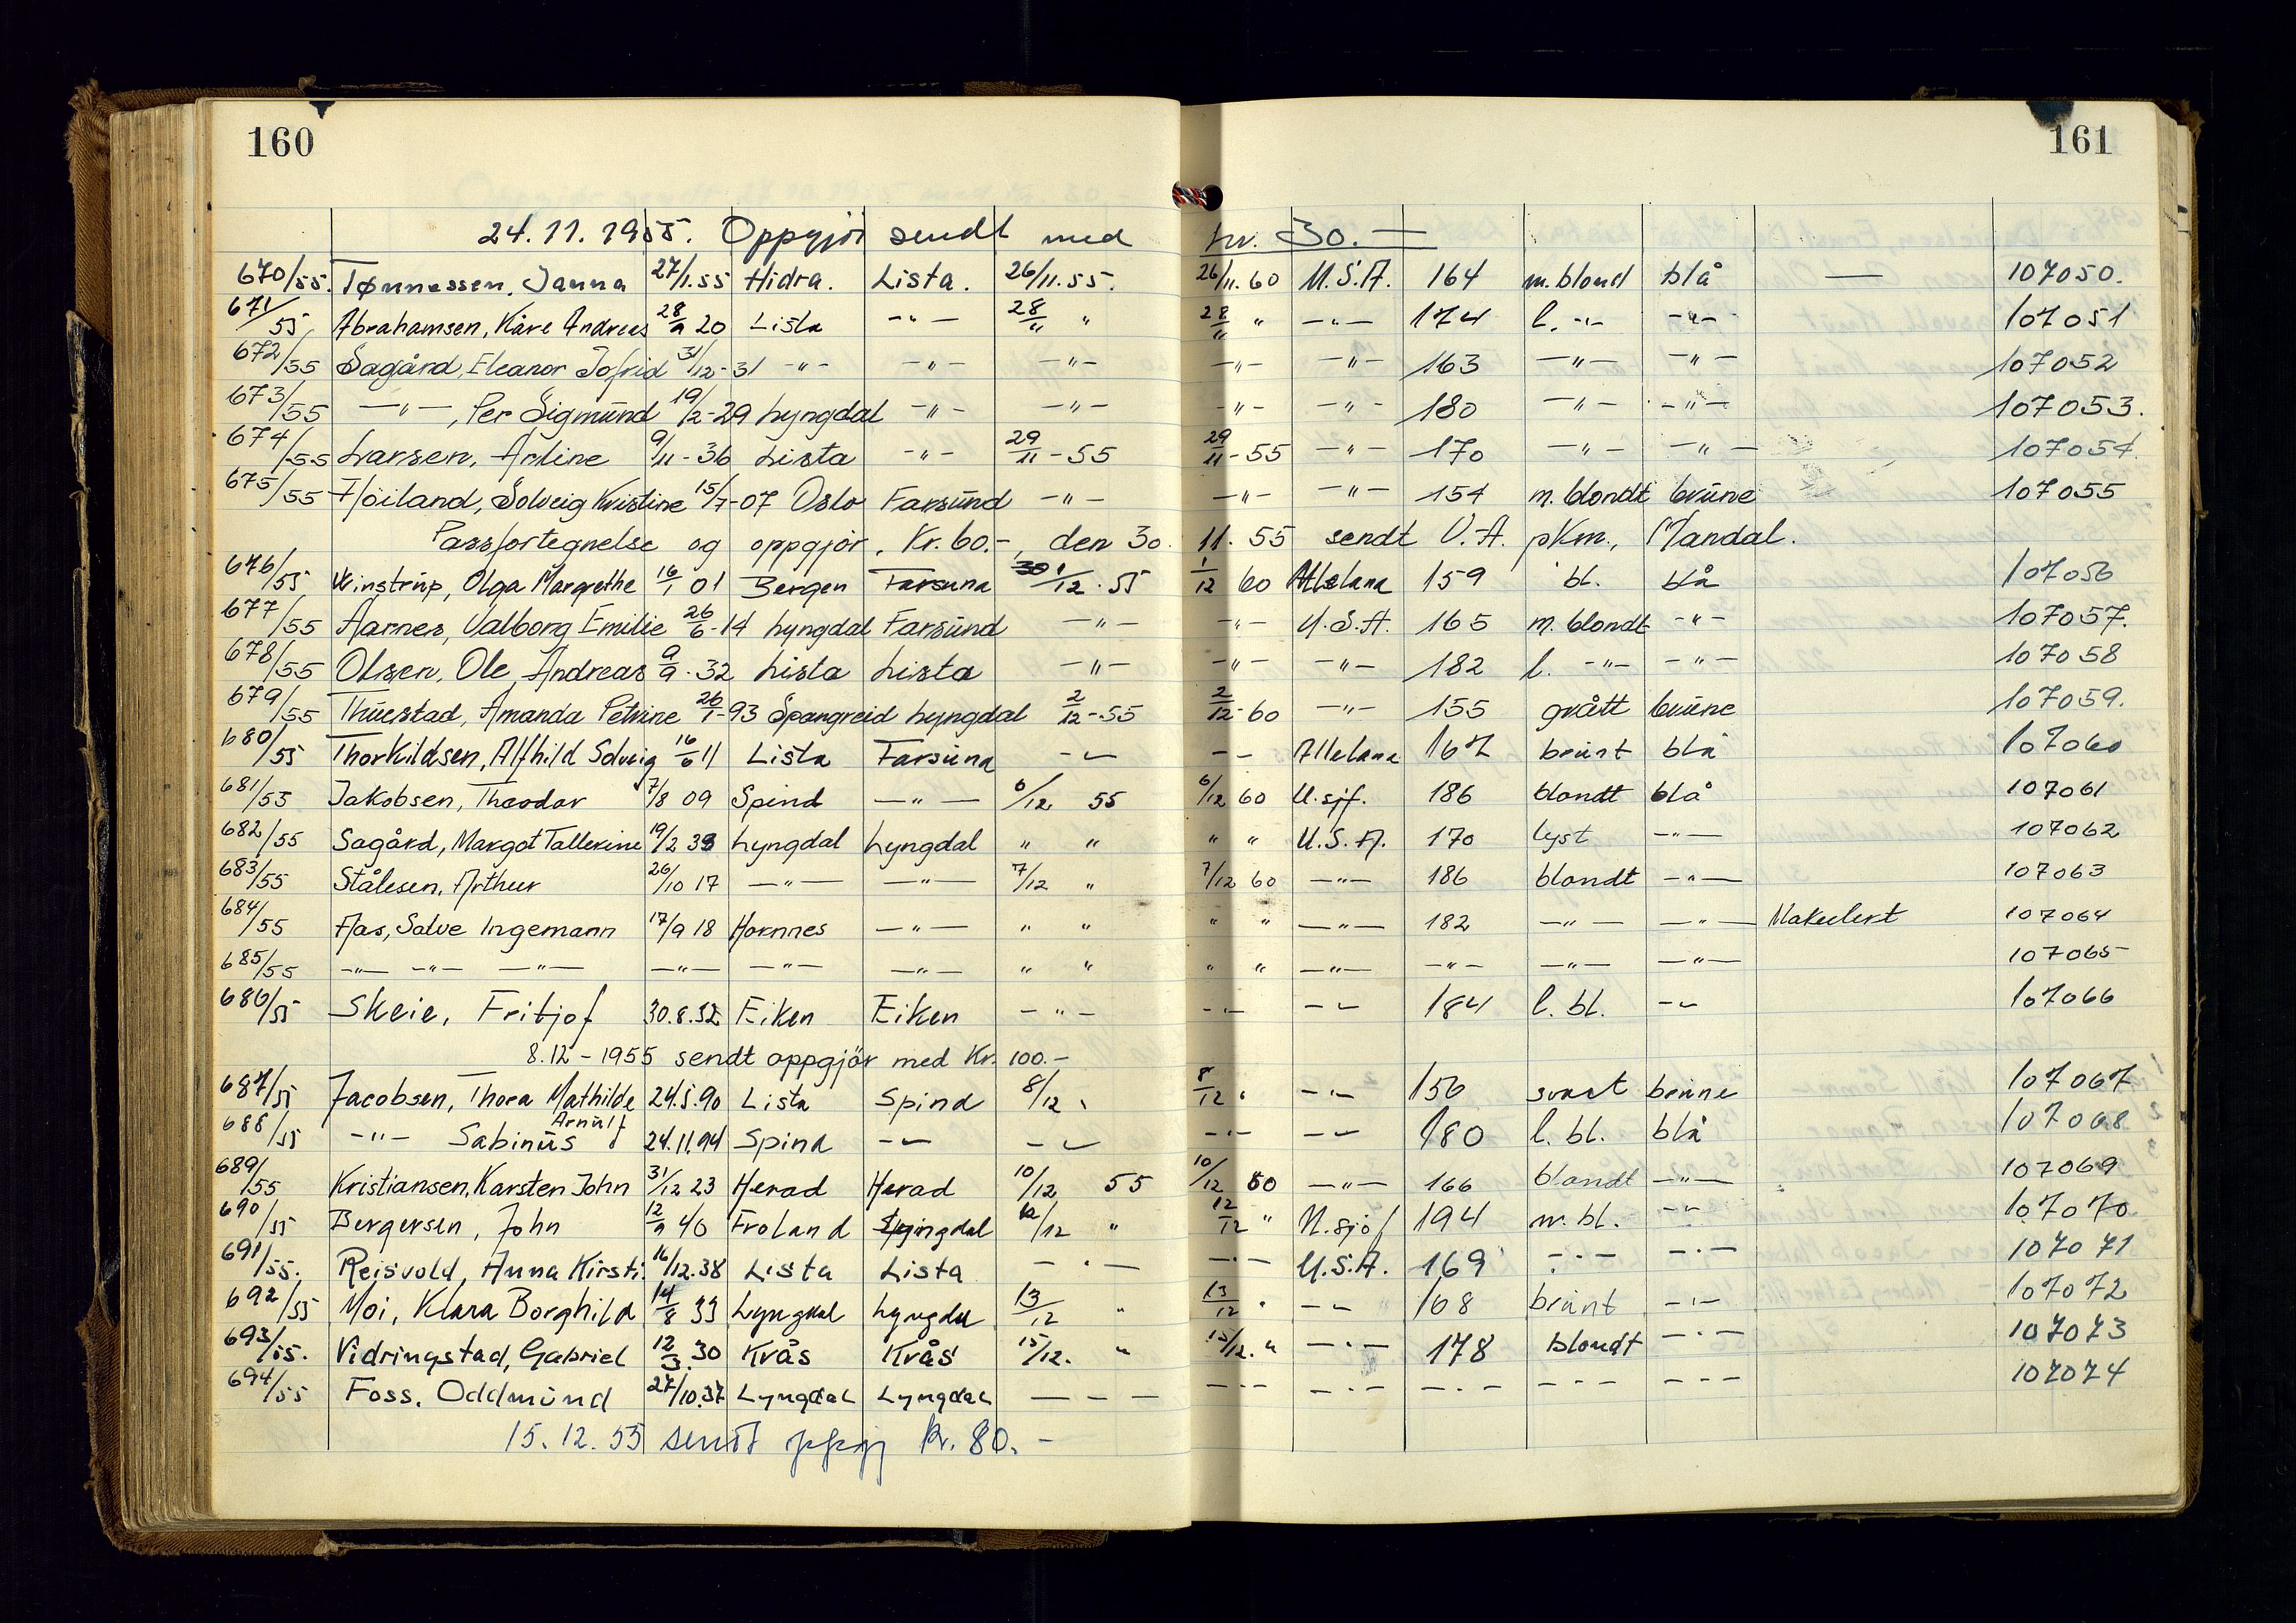 160
161
24.11.1955. Oppgjör sendt med kr. 30.—
670/55. Tønnessen, Janna 27/1.55 Hidra. Lista. 26/11.55. 26/11.60 U.S.A. 164 m.blond blå — 107050.
671/55 Abrahamsen, Kåre Andreas 28/9 20 Lista -"- 28/11 " 28/11 " -"- 174 l. -"- -"- 107051
672/55 Sagård, Eleanor Jofrid 31/12-31 -"- -"- -"- -"- -"- 163 -"- -"- 107052
673/55 -"-, Per Sigmund 19/2-29 Lyngdal -"- -"- -"- -"- 180 -"- -"- 107053.
674/55 Larsen, Arline 9/11-36 Lista -"- 29/11-55 29/11-55 -"- 170 -"- -"- 107054.
675/55 Höiland, Solveig Kristine 15/7-07 Oslo Farsund -"- -"- -"- 154 m. blondt brune 107055
Passfortegnelse og oppgjör, Kr. 60.-, den 30. 11. 55 sendt V.A. pkm., Mandal.
676/55 Winstrup, Olga Margrethe 16/1 01 Bergen Farsund 1/12.55 1/12 60 159 bl. blå 107056
677/55 Aarnes, Valborg Emilie 26/6-14 Lyngdal Farsund -"- -"- U.S.A. 165 m. blondt -"- 107057.
678/55 Olsen, Ole Andreas 9/9.32 Lista Lista -"- -"- -"- 182 l. -"- -"- 107058
679/55 Thuestad, Amanda Petrine 26/1-93 Spangreid Lyngdal 2/12-55 2/12-60 -"- 155 grått brune 107059.
680/55 Thorkildsen, Alfhild Solveig 16/6 11 Lista Farsund -"- -- 167 brunt blå 107060
681/53 Jakobsen, Theodor 7/8 09 Spind -"- 6/12 55 6/12 60 U.sjf. 186 blondt blå 107061
682/55 Sagård, Margot Tallerine 19/2 33 Lyngdal Lyngdal " " " " U.S.A. 170 lyst -"- 107062
683/55 Stålesen, Arthur 26/10 17 -"- -"- 7/12 " 7/12 60 -"- 186 blondt -"- 107063
684/55 Aas, Salve Ingemann 17/9 18 Hornnes -"- " " " " -"- 182 -"- -"- Makulert 107064
685/55 -"- -"- -"- -"- -"- -"- " " " " -"- -"- -"- -"- 107065
686/55 Skeie, Fritjof 30.8.32 Eiken Eiken -"- -"- -"- 184 l. bl. -"- 107066
8.12-1955 sendt oppgjör med Kr. 100.-
687/55 Jacobsen, Thora Mathilde 24.5.90 Lista Spind 8/12 " 8/12 " -"- 156 svart brune 107067
688/55 -"- Sabinus Arnulf 24.11.94 Spind -"- -"- -"- -"- 180 l. bl. blå 107068
689/55 Kristiansen, Karsten John 31/12 23 Herad Herad 10/12 55 10/12 60 -"- 166 blondt -"- 107069
690/55 Bergersen, John 12/9 40 Froland Lyngdal 12/12 " 12/12 " U.sjöf 194 m. bl. -"- 107070
691/55. Reisvold, Anna Kirsti. 16/12.38 Lista Lista -"- -"- U.S.A. 169 -"- -"- 107071
692/55 Moi, Klara Borghild 14/8 33 Lyngdal Lyngdal 13/12 " 13/12 " -"- 168 brunt -"- 107072
693/55. Vidringstad, Gabriel 12/3.30 Kvås Kvås 15/12. " 15/12. " -"- 178 Blondt -"- 107073
694/55 Foss, Oddmund 27/10.37 Lyngdal Lyngdal --- -"- -"- -"- -"- -"- 107074
15.12.55 sendt oppgj kr. 80.-